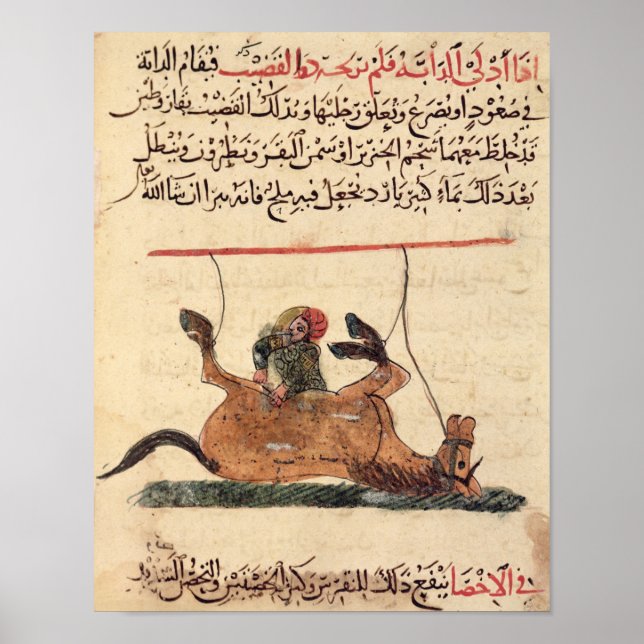 اذا أدلى الدابة فلم يرجع ذكر القضيب فيقام الدابة
في صعود او يصرع وتعلق رجليها ويدلك القضيب بقار وطين
قد خلط معهما شحم الخنزير او سمن البقر ونطرون وينطل
بعد ذلك بماء كثير بارد يجعل فيه ملح فانه يبرا ان شا الله تعالى
في الاخصا ينفع ذلك للنقرس وكبر الخصيتين